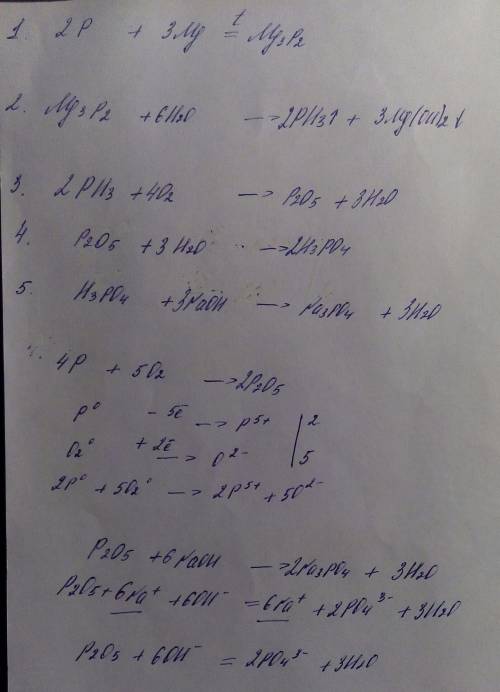 1. 2P + 3Mg t= Mg3P2
2. Mg3P2 + 6H2O → 2PH3↑ + 3Mg(OH)2↓
3. 2PH3 + 4O2 → P2O5 + 3H2O
4. P2O5 + 3H2O → 2H3PO4
5. H3PO4 + 3NaOH → Na3PO4 + 3H2O
4P + 5O2 → 2P2O5
P⁰ - 5ē → P⁵⁺ | 2
O2⁰ + 2ē → O²⁻ | 5
2P⁰ + 5O2⁰ → 2P⁵⁺ + 5O²⁻
P2O5 + 6NaOH → 2Na3PO4 + 3H2O
P2O5 + 6Na⁺ + 6OH⁻ = 6Na⁺ + 2PO4³⁻ + 3H2O
P2O5 + 6OH⁻ = 2PO4³⁻ + 3H2O